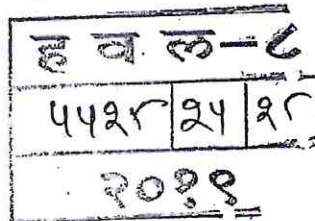 ह व ल - ८
५५२८ २५ २८
२०१९